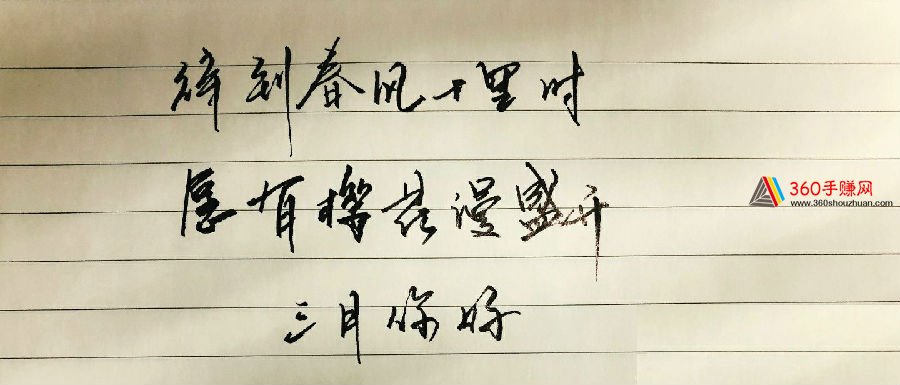 到春风十里时
愿有樱花漫盛开
三月你好
360手赚网
www.360shouzhuan.com